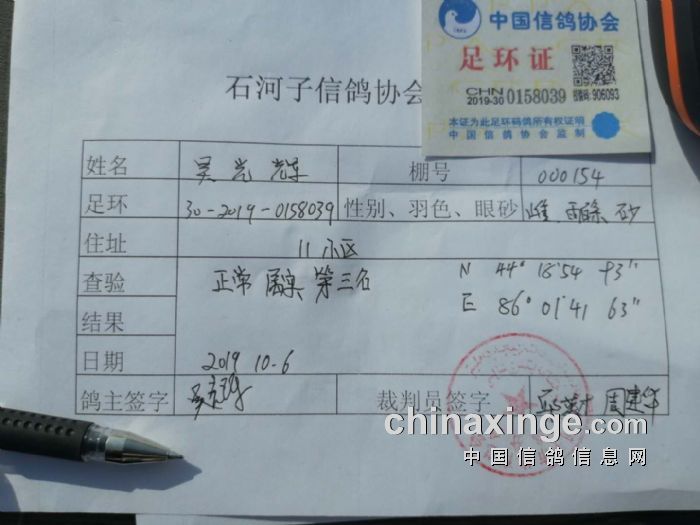 中国信鸽协会
足环证
CHN
2019-30 0158039
906093
本证为此足环码鸽所有权证明
中国信鸽协会监制
石河子信鸽协会
姓名 吴光辉 棚号 000154
足环 30-2019-0158039 性别、羽色、眼砂 雌 雨 砂
住址 11小区
查验 正常 属实 第三名 N 44° 18'54 93"
结果 E 86° 01'41 63"
日期 2019 10-6
鸽主签字 裁判员签字 周建华
chinaxinge.com
中国信鸽信息网